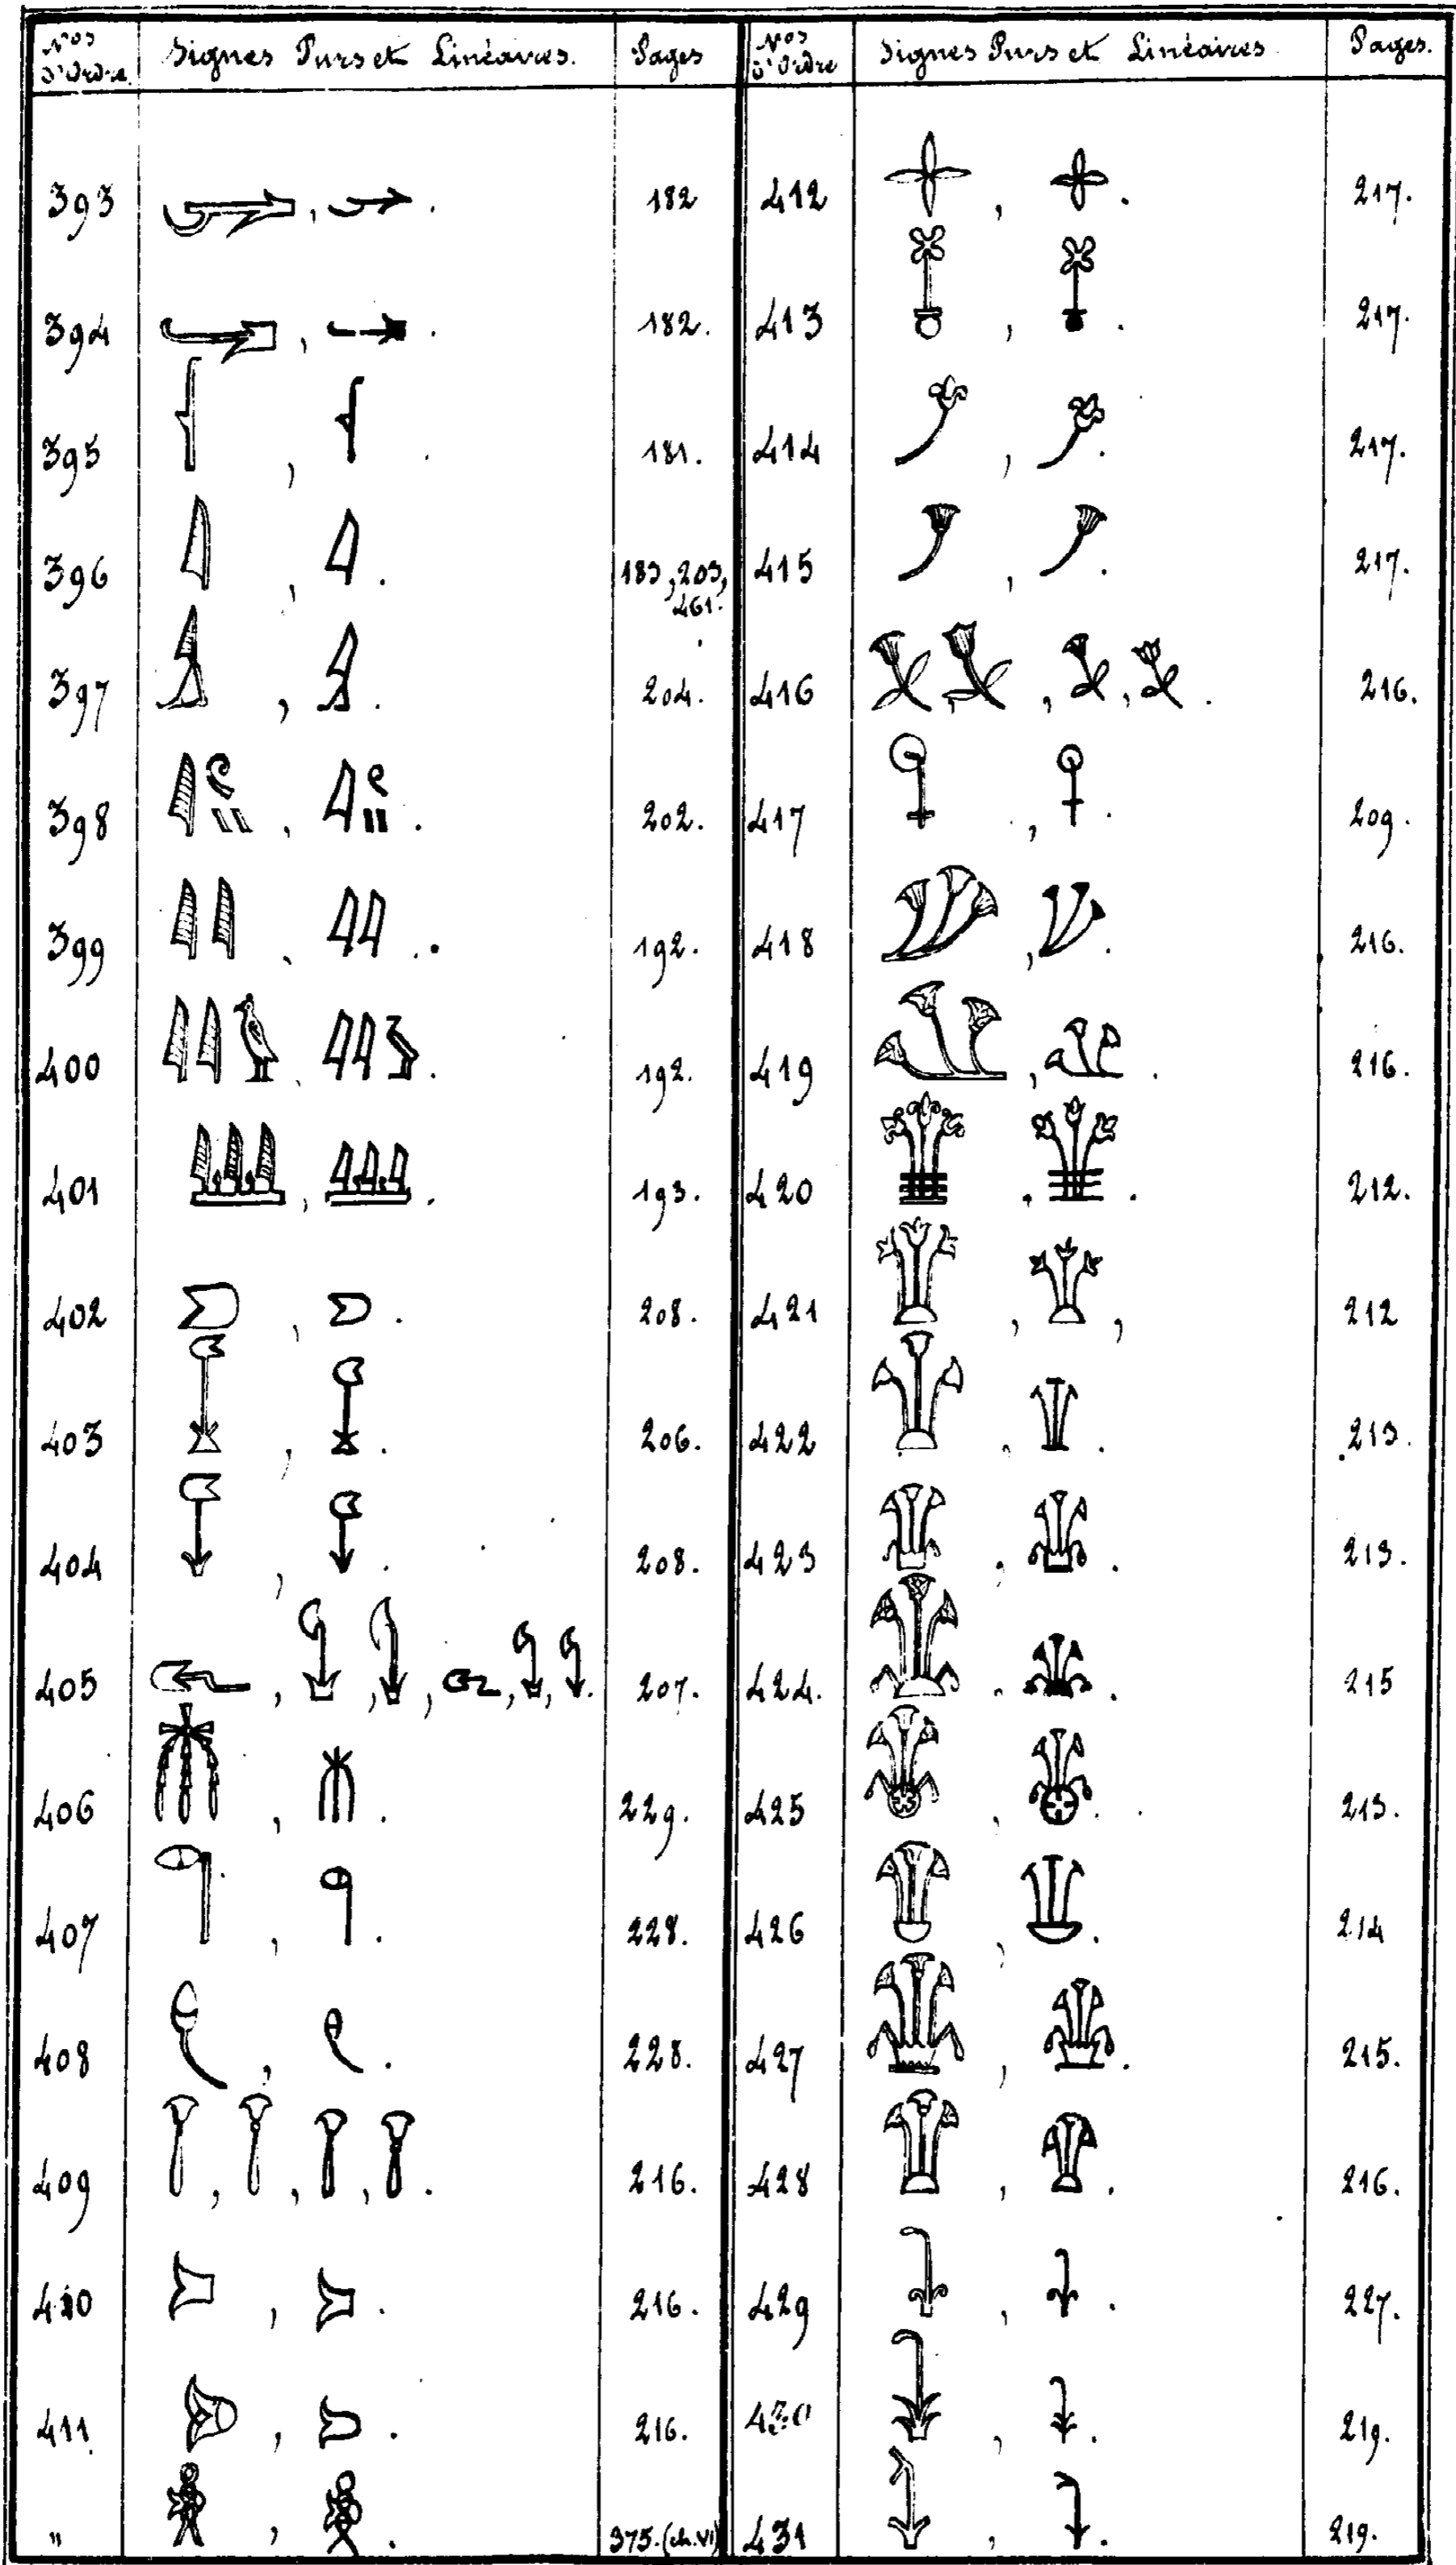 Nos d'Ordre Signes Purs et Linéaires. Pages
393 , . 182
394 , . 182.
395 , . 181.
396 , . 183, 203, 461.
397 , . 204.
398 , . 202.
399 , . 192.
400 , . 192.
401 , . 193.
402 , . 208.
403 , . 206.
404 , . 208.
405 , , , , , . 207.
406 , . 229.
407 , . 228.
408 , . 228.
409 , , , . 216.
410 , . 216.
411 , . 216.
" , . 375. (ch. VI)
Nos d'Ordre Signes Purs et Linéaires Pages.
412 , . 217.
413 , . 217.
414 , . 217.
415 , . 217.
416 , , , . 216.
417 , . 209.
418 , . 216.
419 , . 216.
420 , . 212.
421 , , 212
422 , . 213.
423 , . 213.
424. , . 215
425 , . 213.
426 , . 214
427 , . 215.
428 , . 216.
429 , . 227.
430 , . 219.
431 , . 219.